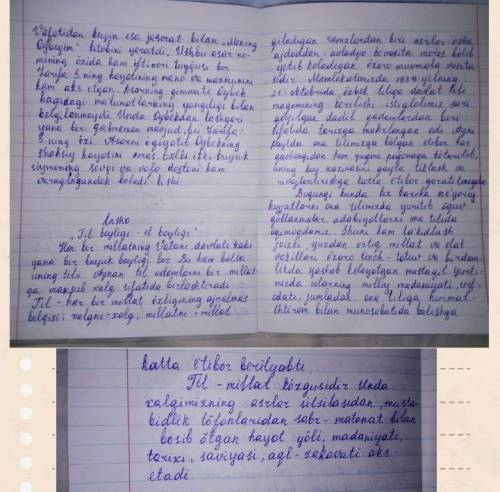 Vafotidan keyin esa jasorat bilan „Mening
Oybegim" kitobini yaratdi. Ushbu asar no-
mining özida ham iftixor tuyģusi bor
Zarifa S.ning hayotining mano va mazmunini
ham aks etgan. Asarning qimmati Oybek
haqidagi malumotlarning yangiligi bilan
belgilanmaydi. Unda Oybekdan tashqari
yana bir qahramon mavjud, bu Zarifa
S.ning özi. Asarni öqiyotib Oybekning
shaxsiy hayotini emas, balki ikki buyuk
siymoning sevgi va vafo dostoni ham
varaqlagandek boladi kishi
Insho
„Til boyligi - el boyligi"
Har bir millatning Vatani, davlati kabi
yana bir buyuk boyligi bor. Bu ham bolsa
uning tili. Aynan til odamlarni bir millat-
ga mansub xalq sifatida birlashtiradi
Til - har bir millat özligining ajralmas
belgisi: xalqni-xalq, millatni - millat
qiladigan ramzlardan biri asrlar osha
ajdoddan-avlodga bevosita meros bölib
yetib keladigan özaro muomala vosita-
sidir. Mamlakatimizda 1989-yilning
21-oktabrida özbek tiliga davlat tili
maqomining berilishi istiqlolimiz sari
qöyilgan dadil qadamlardan biri
sifatida tarixga muhrlangan edi. Ayni
paytda ona tilimizga bölgan etibor har
qachongidan ham yuqori poģonaga kötarilib,
uning boy xazinasini qayta tiklash va
rivojlantirishga katta etibor qaratilmoqda
Bugungi kunda biz barcha meyoriy
hujjatlarni ona tilimizda yuritib, öquv
qöllanmalar, adabiyotlarni ona tilida
öqimoqdamiz. Shuni ham takidlash
joizki, yuzdan ortiq millat va elat
vakillari özaro tinch-totuv va birdam-
likda yashab kelayotgan mustaqil yurti-
mizda ularning milliy madaniyati, urf-
odati, jumladan, ona tiliga hurmat-
ehtirom bilan munosabatda bölishga
katta etibor berilyabti.
Til - millat közgusidir. Unda
xalqimizning asrlar silsilasidan, musta-
bidlik töfonlaridan sabr - matonat bilan
bosib ötgan hayot yöli, madaniyati,
tarixi, saviyasi, aql - zakovati aks
etadi